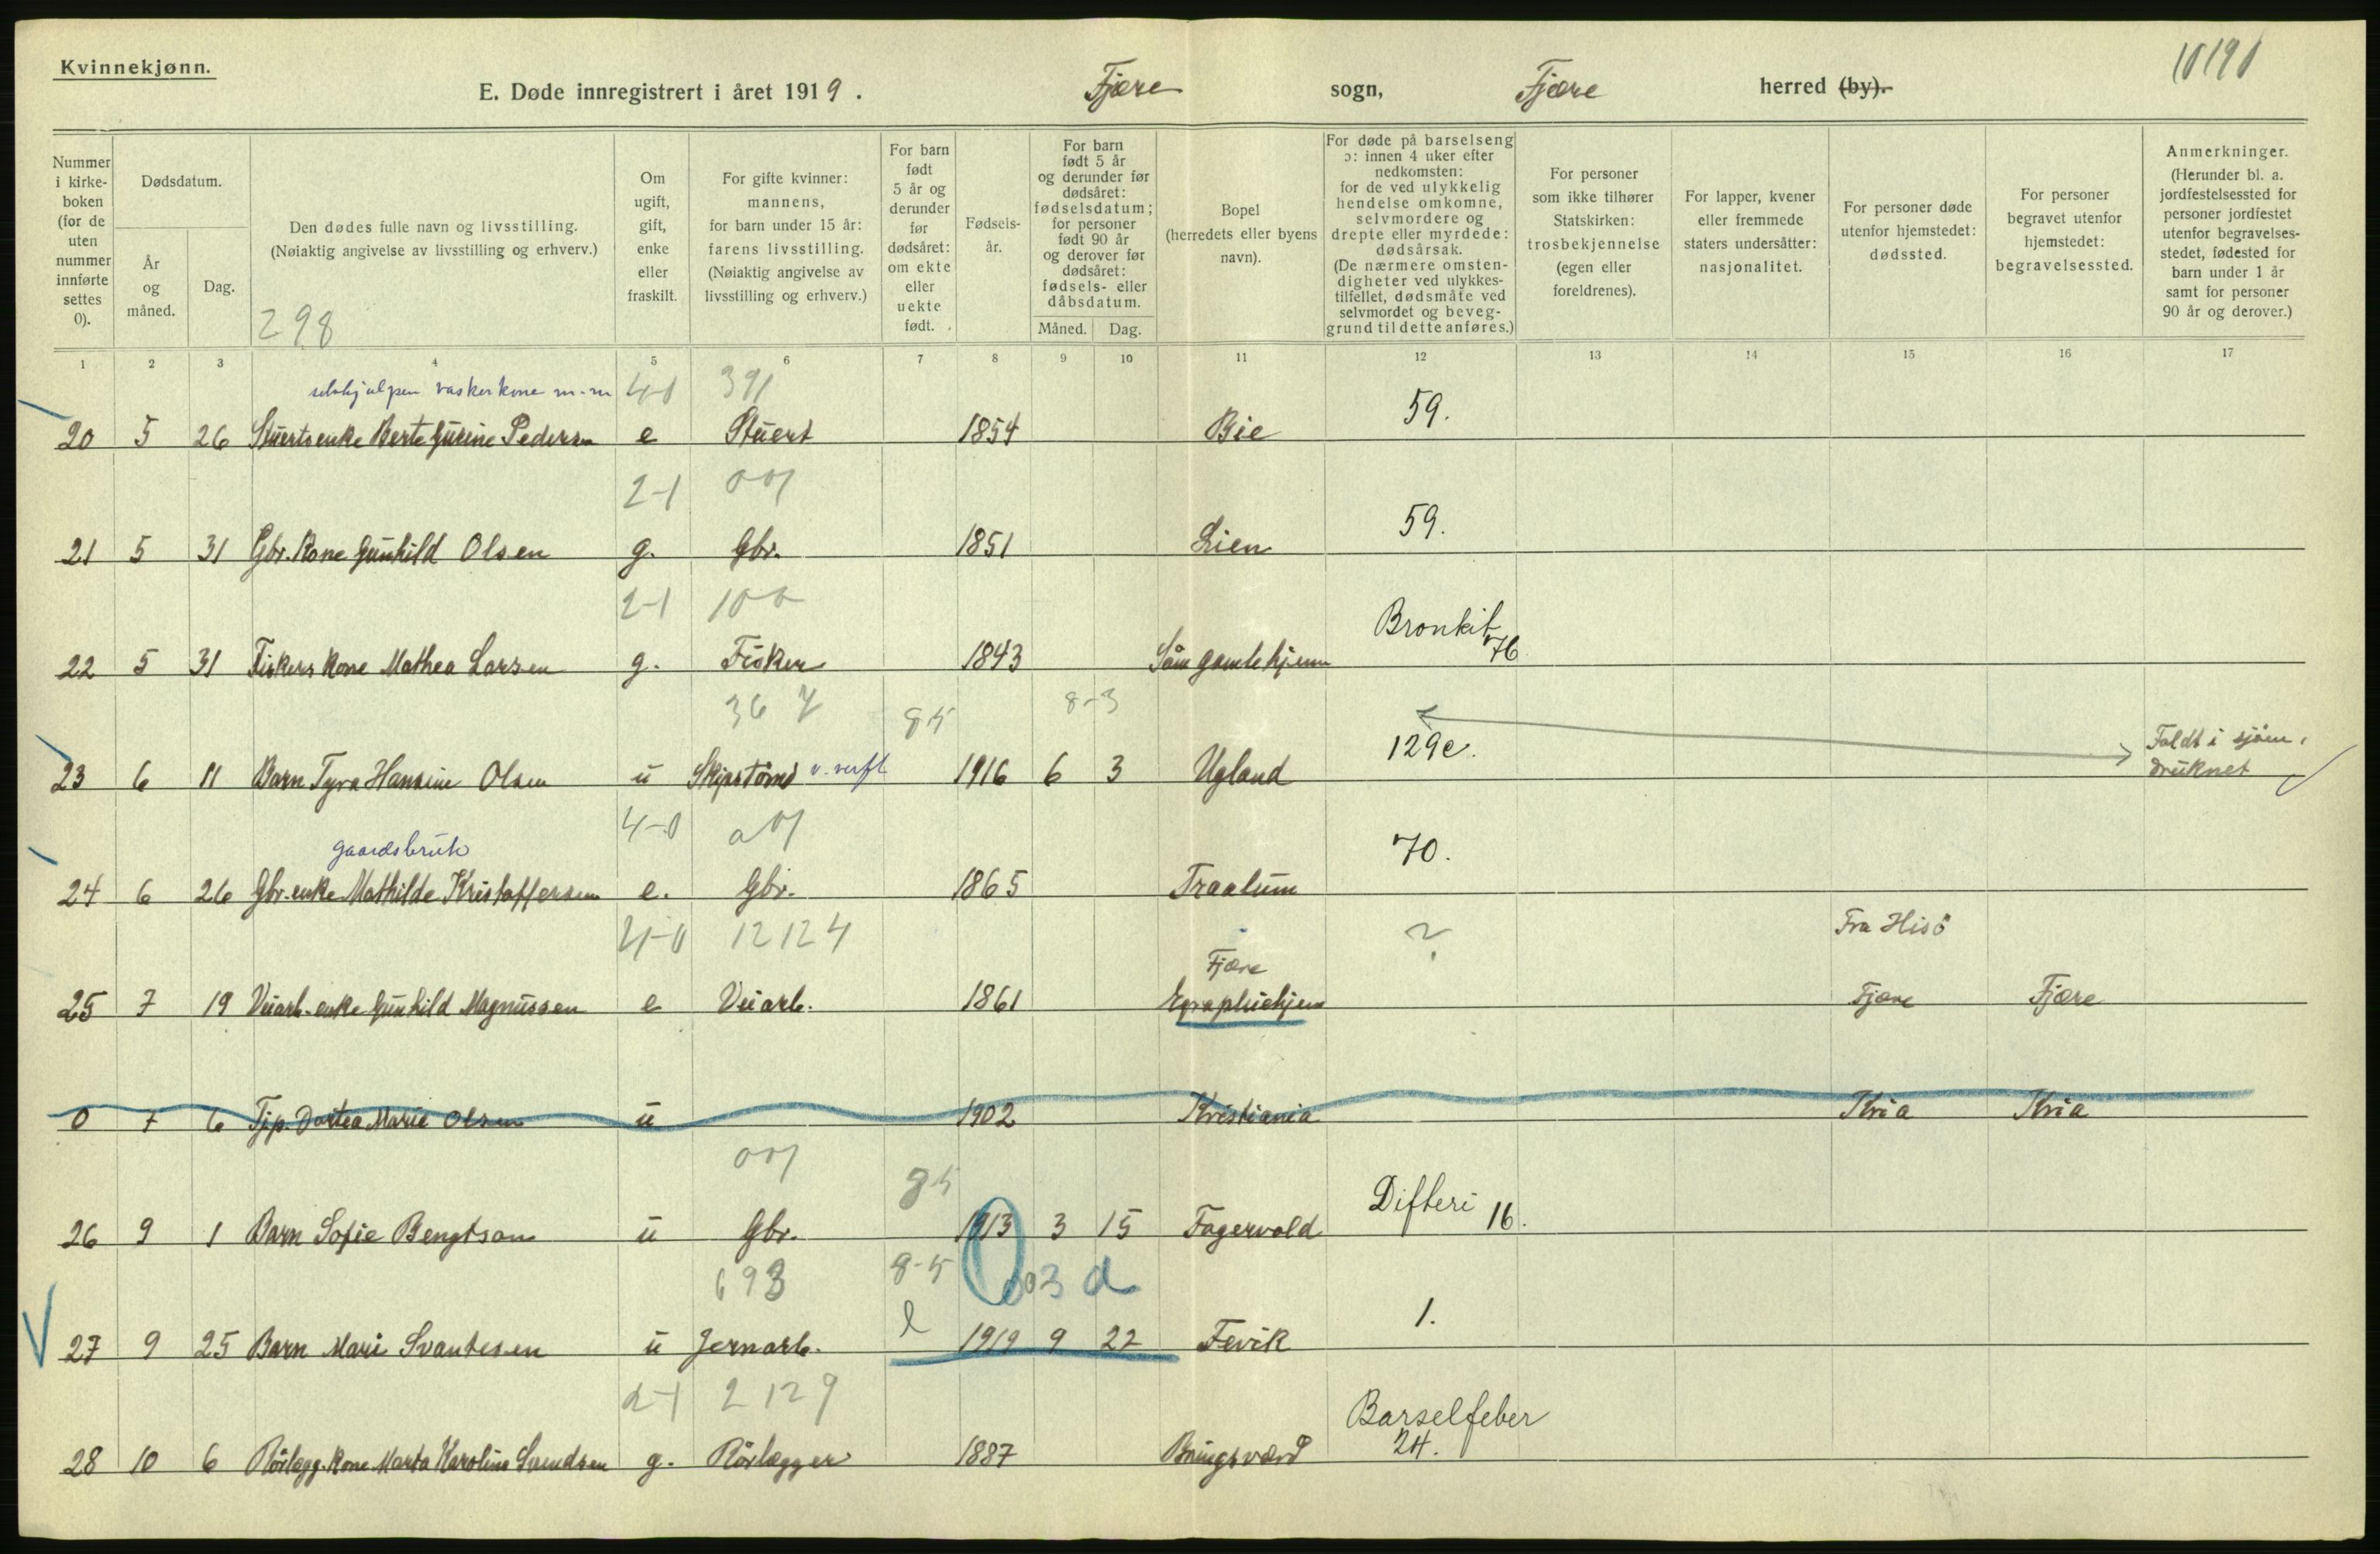 Kvinnekjønn.
10191
E. Døde innregistrert i året 1919. Fjære sogn, Fjære herred (by).
Nummer i kirkeboken (for de uten nummer innførte settes 0).
Dødsdatum.
År og måned.
Dag.
Den dødes fulle navn og livsstilling.
(Nøiaktig angivelse av livsstilling og erhverv.)
298
Om ugift, gift, enke eller fraskilt.
For gifte kvinner: mannens, for barn under 15 år: farens livsstilling. (Nøiaktig angivelse av livsstilling og erhverv.)
For barn født 5 år og derunder før dødsåret: om ekte eller uekte født.
Fødselsår.
For barn født 5 år og derunder før dødsåret: fødselsdatum; for personer født 90 år og derover før dødsåret: fødsels- eller dåbsdatum.
Måned. Dag.
Bopel (herredets eller byens navn).
For døde på barselseng ɔ: innen 4 uker efter nedkomsten: for de ved ulykkelig hendelse omkomne, selvmordere og drepte eller myrdede: dødsårsak. (De nærmere omstendigheter ved ulykkestilfellet, dødsmåte ved selvmordet og beveggrund til dette anføres.)
For personer som ikke tilhører Statskirken: trosbekjennelse (egen eller foreldrenes).
For lapper, kvener eller fremmede staters undersåtter: nasjonalitet.
For personer døde utenfor hjemstedet: dødssted.
For personer begravet utenfor hjemstedet: begravelsessted.
Anmerkninger. (Herunder bl. a. jordfestelsessted for personer jordfestet utenfor begravelsesstedet, fødested for barn under 1 år samt for personer 90 år og derover.)
1 2 3 4 5 6 7 8 9 10 11 12 13 14 15 16 17
selvhjulpen vaskerkone m.m 4-0 391
20 5 26 Stuertsenke Berte Gurine Pedersen e Stuert 1854 Bie 59.
2-1 001
21 5 31 Gbr. Kone Gunhild Olsen g. Gbr. 1851 Lien 59.
2-1 100
22 5 31 Fiskers Kone Mathea Larsen g. Fisker 1843 Søm gamlehjem Bronkit 76
36 7 85 8-3
23 6 11 Barn Tyra Hansine Olsen u Skipstømd v. verft 1916 6 3 Ugland 129e. Faldt i sjøen, druknet
gaardsbruk 4-0 001
24 6 26 Gbr. enke Mathilde Kristoffersen e. Gbr. 1865 Traalum 70.
4-0 12124 ? Fra Hisö
Fjære
25 7 19 Veiarb. enke Gunhild Magnussen e Veiarb. 1861 Fjære Fjære
0 7 6 Tjp. Dortea Marie Olsen u 1902 Kristiania Kria Kria
001 85
26 9 1 Barn Sofie Bengtson u Gbr. 1913 3 15 Fagervold Difteri 16.
693 8-5 003 d
27 9 25 Barn Mari Svantesen u Jernarb. l 1919 9 22 Fevik 1.
2-1 2129
28 10 6 Rörlegg. Kone Marta Karoline Svendsen g. Rörlægger 1887 Bringsværd Barselfeber 24.